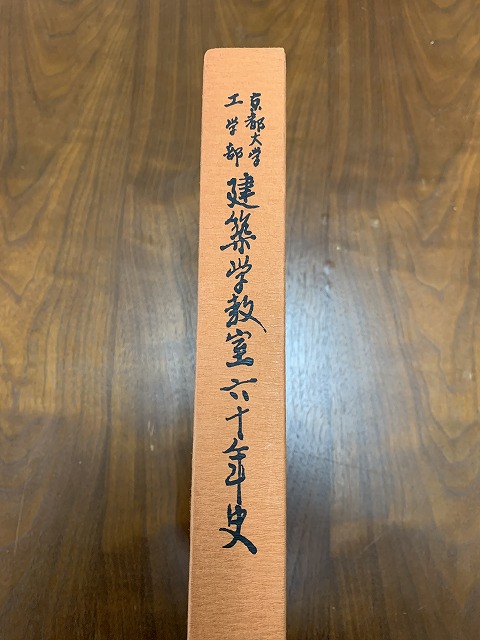 京都大学
工学部
建築学教室六十年史